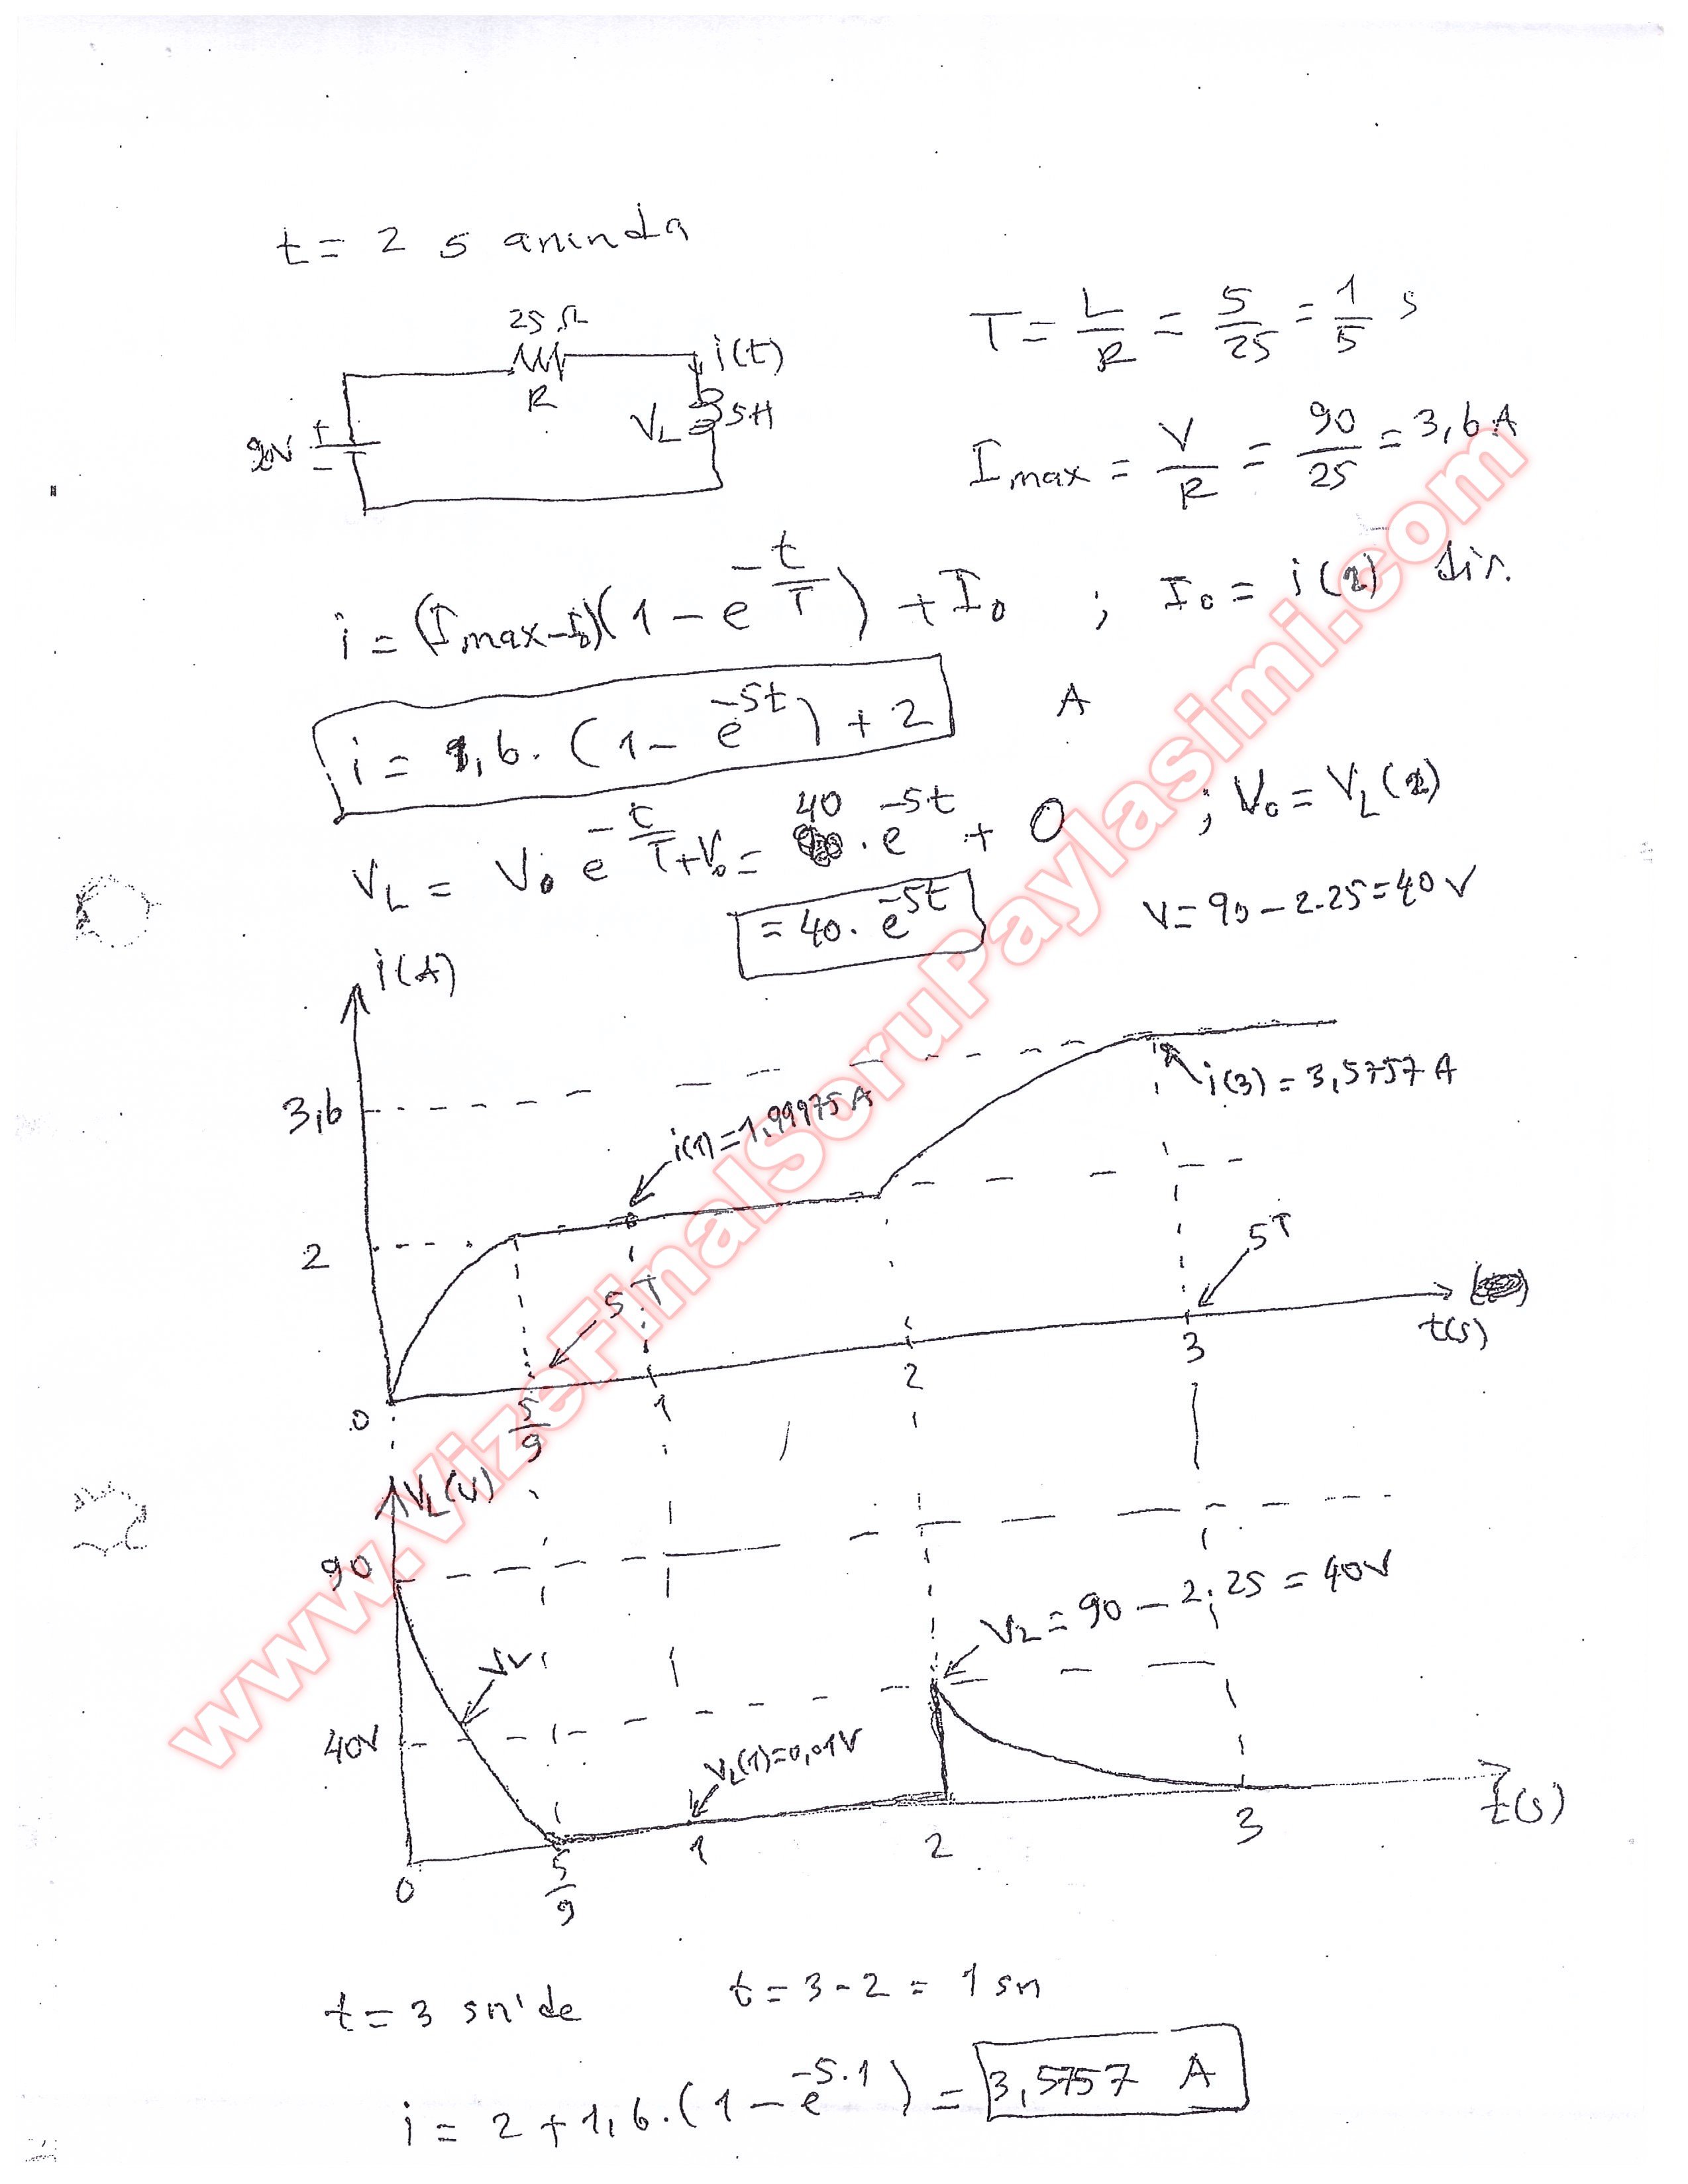 t = 2 s anında
25 Ω
R
i(t)
V_L
5H
90V
+
-
T = L/R = 5/25 = 1/5 s
I max = V/R = 90/25 = 3,6 A
i = (I max - I₀)(1 - e^(-t/T)) + I₀ ; I₀ = i(2) dir.
i = 1,6 . (1 - e^(-5t)) + 2 A
V_L = V₀ e^(-t/T) + V₀ = 40 . e^(-5t) + 0 ; V₀ = V_L(2)
= 40 . e^(-5t)
V = 90 - 2.25 = 40 V
i(A)
3,6
i(1) = 1,99975 A
i(3) = 3,5757 A
2
5T
5T
t(s)
0
5/9
1
2
3
V_L(V)
90
V_L = 90 - 2.25 = 40V
V_L
40V
V_L(1) = 0,01V
t(s)
0
5/9
1
2
3
t = 3 sn'de t = 3 - 2 = 1 sn
i = 2 + 1,6 . (1 - e^(-5.1)) = 3,5757 A
www.VizeFinalSoruPaylasimi.com